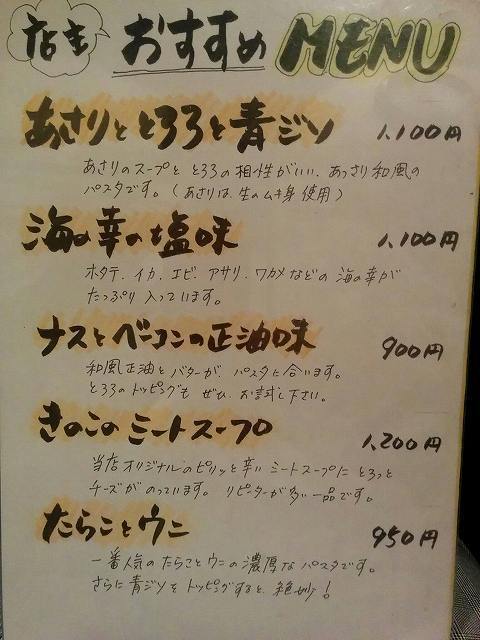 店主 おすすめ MENU
あさりととろろと青ジソ 1,100円
あさりのスープと とろろの相性がいい、あっさり和風の
パスタです。(あさりは、生のムキ身使用)
海の幸の塩味 1,100円
ホタテ.イカ.エビ.アサリ.ワカメなどの 海の幸が
たっぷり入っています。
ナスとベーコンの正油味 900円
和風正油とバターが、パスタに合います。
とろろのトッピングも ぜひ、お試し下さい。
きのこのミートスープ 1,200円
当店オリジナルのピリッと辛いミートスープに とろっと
チーズがのっています。リピーターが多い一品です。
たらことウニ 950円
一番人気のたらことウニの濃厚なパスタです。
さらに青ジソをトッピングすると、絶妙!